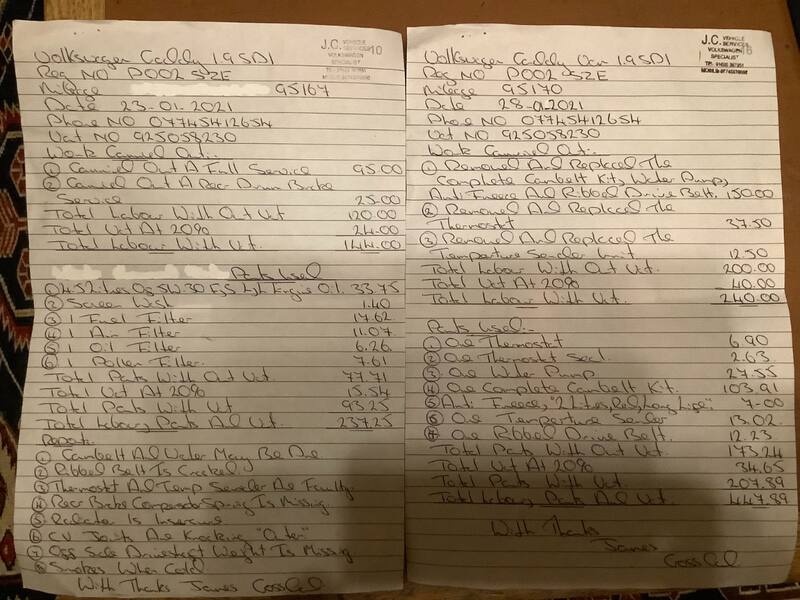 J.C. VEHICLE
SERVICES
VOLKSWAGEN
SPECIALIST
10
Volkswagen Caddy 1.9SDI
Reg NO P002 SZE
Mileage 95167
Date 23-01.2021
Phone NO 07745412654
Vat NO 925058230
Work Carried Out:-
① Carried Out A Full Service 95.00
② Carried Out A Rear Drum Brake
Service 25.00
Total Labour With Out Vat 120.00
Total Vat At 20% 24.00
Total Labour With Vat. 144.00
Parts Used
① 4.5 Litres Of 5W.30 F/S L/L Engine Oil. 33.75
② Screen Wash 1.40
③ 1 Fuel Filter 17.62
④ 1 Air Filter 11.07
⑤ 1 Oil Filter 6.26
⑥ 1 Pollen Filter. 7.61
Total Parts With Out Vat 77.71
Total Vat At 20% 15.54
Total Parts With Vat 93.25
Total Labour, Parts Ad Vat. 237.25
Report:-
① Cambelt Ad Water May Be Due
② Ribbed Belt Is Cracked
③ Thermostat Ad Temp Sender Are Faulty.
④ Rear Brake Compensator Spring Is Missing
⑤ Is Insecure
⑥ CV Joints Are Knocking "Outer"
⑦ Off Side Driveshaft Weight Is Missing
⑧ Smokes When Cold
With Thanks James
J.C. VEHICLE
SERVICES
VOLKSWAGEN
SPECIALIST
Volkswagen Caddy Van 1.9SDI
Reg NO P002 SZE
Mileage 95170
Date 28-01.2021
Phone NO 07745412654
Vat NO 925058230
Work Carried Out:-
① Removed And Replaced The
Complete Cambelt Kit, Water Pump,
Anti Freeze And Ribbed Drive Belt. 150.00
② Removed Ad Replaced The
Thermostat 37.50
③ Removed And Replaced The
Temperture Sender Unit 12.50
Total Labour With Out Vat. 200.00
Total Vat At 20% 40.00
Total Labour With Vat. 240.00
Parts Used:-
① One Thermostat 6.90
② One Thermostat Seal. 2.63
③ One Water Pump 27.55
④ One Complete Cambelt Kit. 103.91
⑤ Anti Freeze, "2 Litres, Red, Long Life". 7-00
⑥ One Temperture Sender 13.02
⑦ One Ribbed Drive Belt. 12.23
Total Parts With Out Vat 173.24
Total Vat At 20% 34.65
Total Parts With Vat 207.89
Total Labour, Parts And Vat. 447.89
With Thanks
James